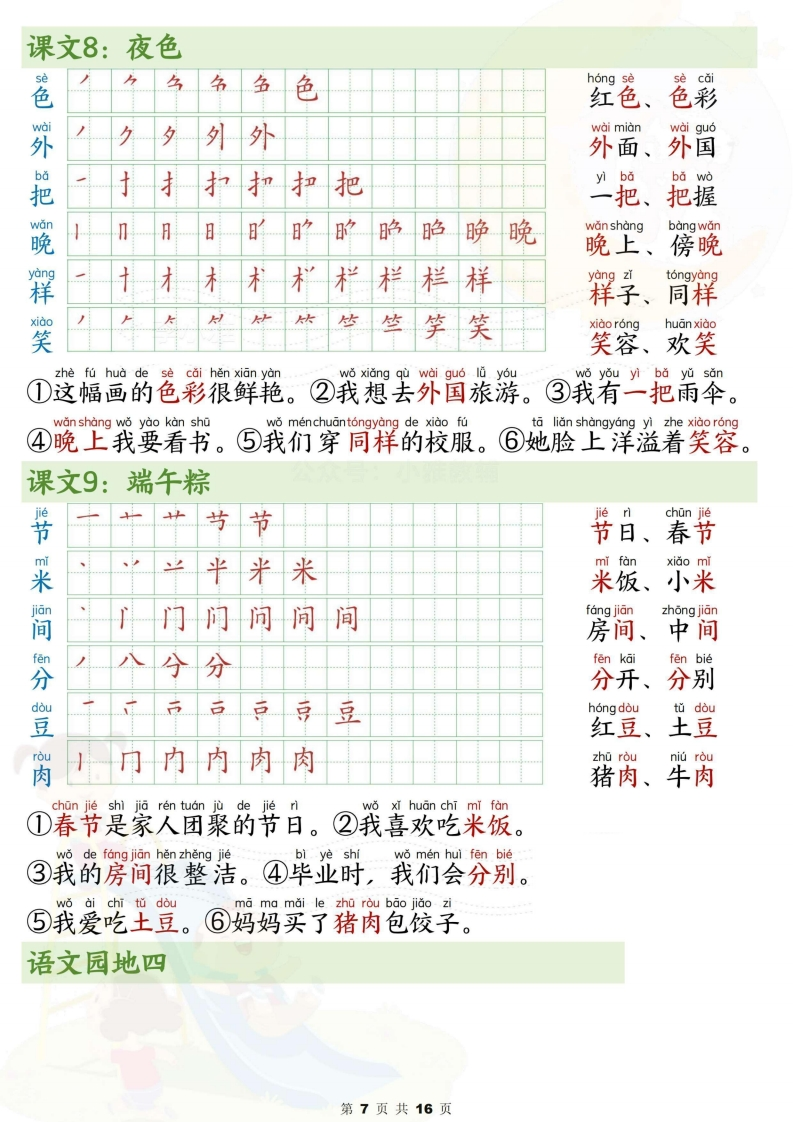 课文8：夜色
sè hóng sè sè cǎi
色 丿 色 红色、色彩
wài wài miàn wài guó
外 丿 夕 外 外 外面、外国
bǎ yì bǎ bǎ wò
把 一 扌 把 一把、把握
wǎn wǎn shàng bàng wǎn
晚 丨 冂 日 日 晚 晚上、傍晚
yàng yàng zǐ tóng yàng
样 一 十 才 木 栏 样 样子、同样
xiào xiào róng huān xiào
笑 丿 竺 笑 笑容、欢笑
zhè fú huà de sè cǎi hěn xiān yàn wǒ xiǎng qù wài guó lǚ yóu wǒ yǒu yì bǎ yǔ sǎn
①这幅画的色彩很鲜艳。②我想去外国旅游。③我有一把雨伞。
wǎn shàng wǒ yào kàn shū wǒ mén chuān tóng yàng de xiào fú tā liǎn shàng yáng yì zhe xiào róng
④晚上我要看书。⑤我们穿同样的校服。⑥她脸上洋溢着笑容。
课文9：端午粽
jié jié rì chūn jié
节 一 艹 节 节日、春节
mǐ mǐ fàn xiǎo mǐ
米 丶 丷 半 米 米 米饭、小米
jiān fáng jiān zhōng jiān
间 丶 门 门 问 间 间 房间、中间
fēn fēn kāi fēn bié
分 丿 八 分 分 分开、分别
dòu hóng dòu tǔ dòu
豆 一 豆 红豆、土豆
ròu zhū ròu niú ròu
肉 丨 冂 内 内 肉 肉 猪肉、牛肉
chūn jié shì jiā rén tuán jù de jié rì wǒ xǐ huān chī mǐ fàn
①春节是家人团聚的节日。②我喜欢吃米饭。
wǒ de fáng jiān hěn zhěng jié bì yè shí wǒ mén huì fēn bié
③我的房间很整洁。④毕业时，我们会分别。
wǒ ài chī tǔ dòu mā ma mǎi le zhū ròu bāo jiǎo zi
⑤我爱吃土豆。⑥妈妈买了猪肉包饺子。
语文园地四
第 7 页 共 16 页